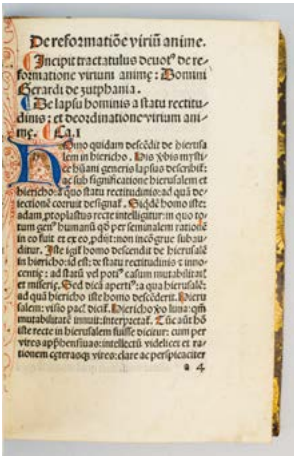 De reformatiōe viriū anime.
Incipit tractatulus deuotꝰ de re-
formatione virium animę: Domini
Gerardi de zutphania.
De lapsu hominis a statu rectitu-
dinis: et deordinatione virium ani-
mę. Ca. I
Homo quidam descēdit de hierusa
lem in hiericho. His v̄bis mysti-
ce hūani generis lapsus describiť:
ac sub significatione hierusalem et
hiericho: a quo statu rectitudinis: ad quā de-
iectionē corruit designať. Siqdē homo iste:
adam ꝓtoplastus recte intelligitur: in quo to-
tum genꝰ humanū qđ per seminalem rationē
in eo fuit et ex eo ꝓdijt: non incōgrue subau-
ditur. Iste igiť homo descendit de hierusalē
in hiericho: id est: de statu rectitudinis et inno-
centię: ad statū vel potiꝰ casum mutabilitatis
et miserię. Sed dicā apertiꝰ: a qua hierusalē:
ad quā hiericho iste homo descēderit. Hieru
salem: visio pacꝭ diciť. Hiericho v̄o luna: qm̄
mutabilitatē innuit: interpretať. Tūc aūt hō
iste recte in hierusalem fuisse dicitur: cum per
vires apphēsiuas: intellectū videlicet et ra-
tionem cęterasqꝫ vires: clare ac perspicaciter
a 4